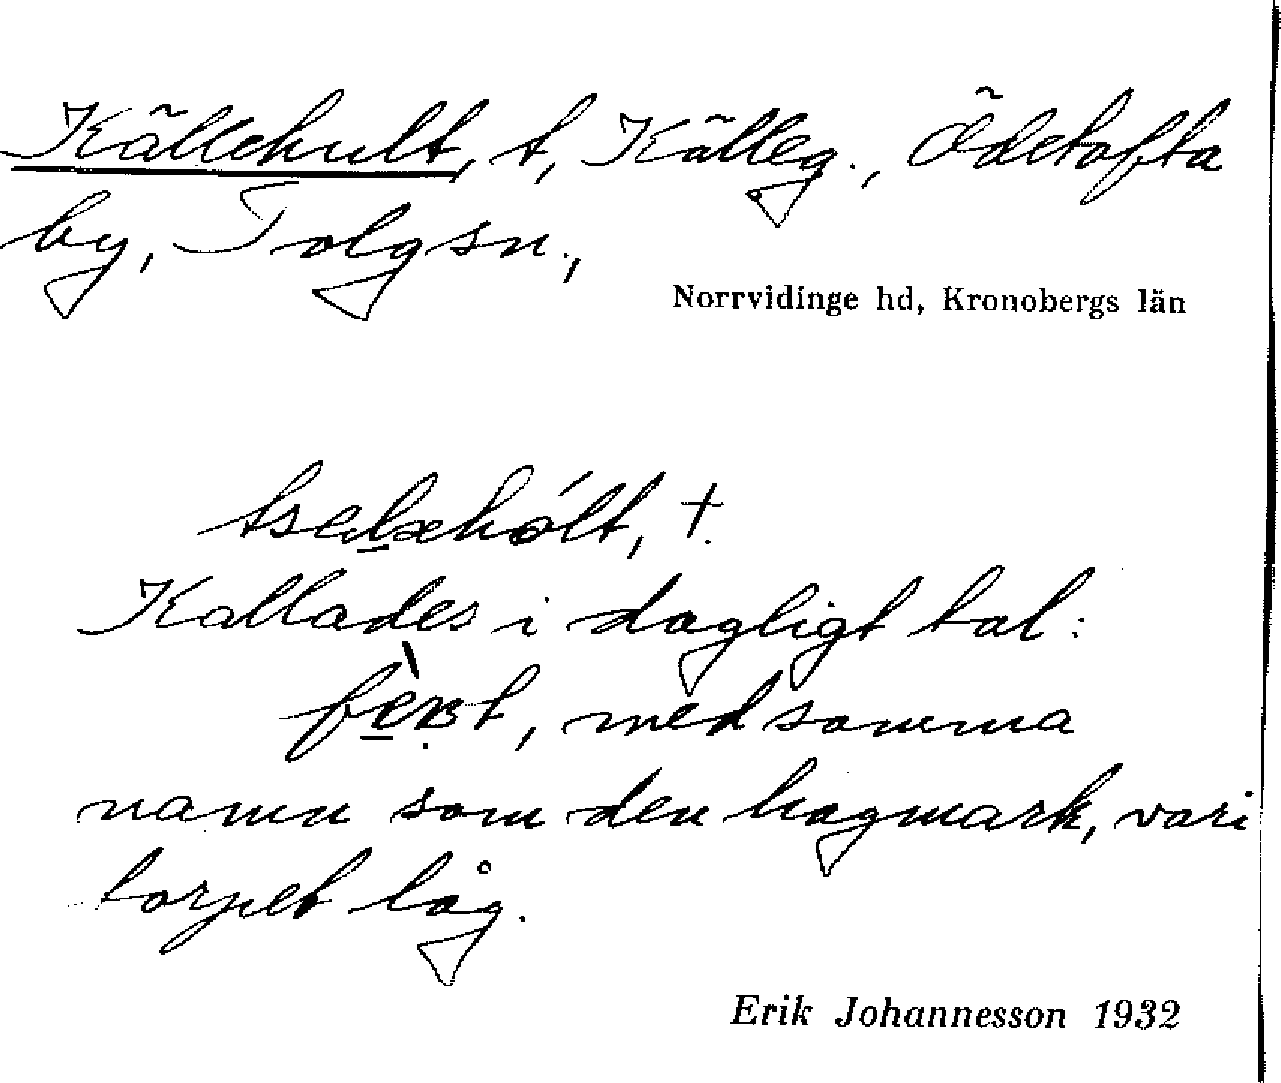 Källehult, t, Källeg., Ödetofta
by, Tolgsn.,
Norrvidinge hd, Kronobergs län
tselæhólt, †.
Kallades i dagligt tal:
med samma
namn som den hagmark, vari
torpet låg.
Erik Johannesson 1932